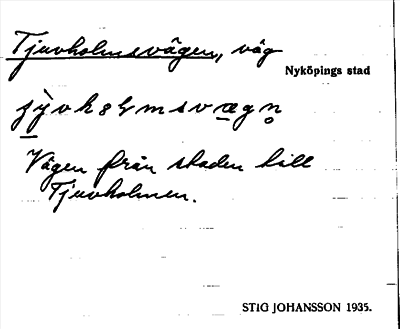 Tjuvholmsvägen, väg
Nyköpings stad
Vägen från staden till
Tjuvholmen.
STIG JOHANSSON 1935.